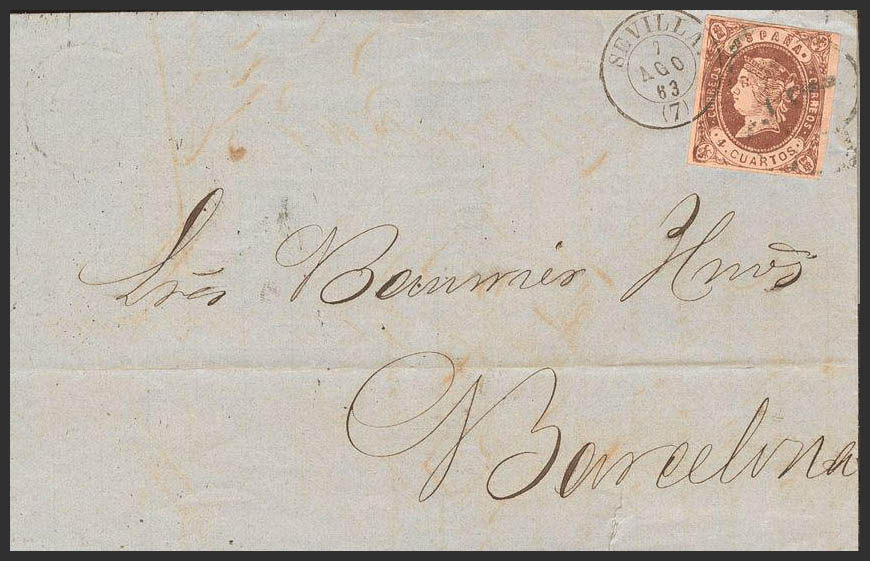 SEVILLA
7
AGO
63
(7)
ESPAÑA
CORREOS
CORREOS
4 CUARTOS
Sres Baumier Hnos
Barcelona